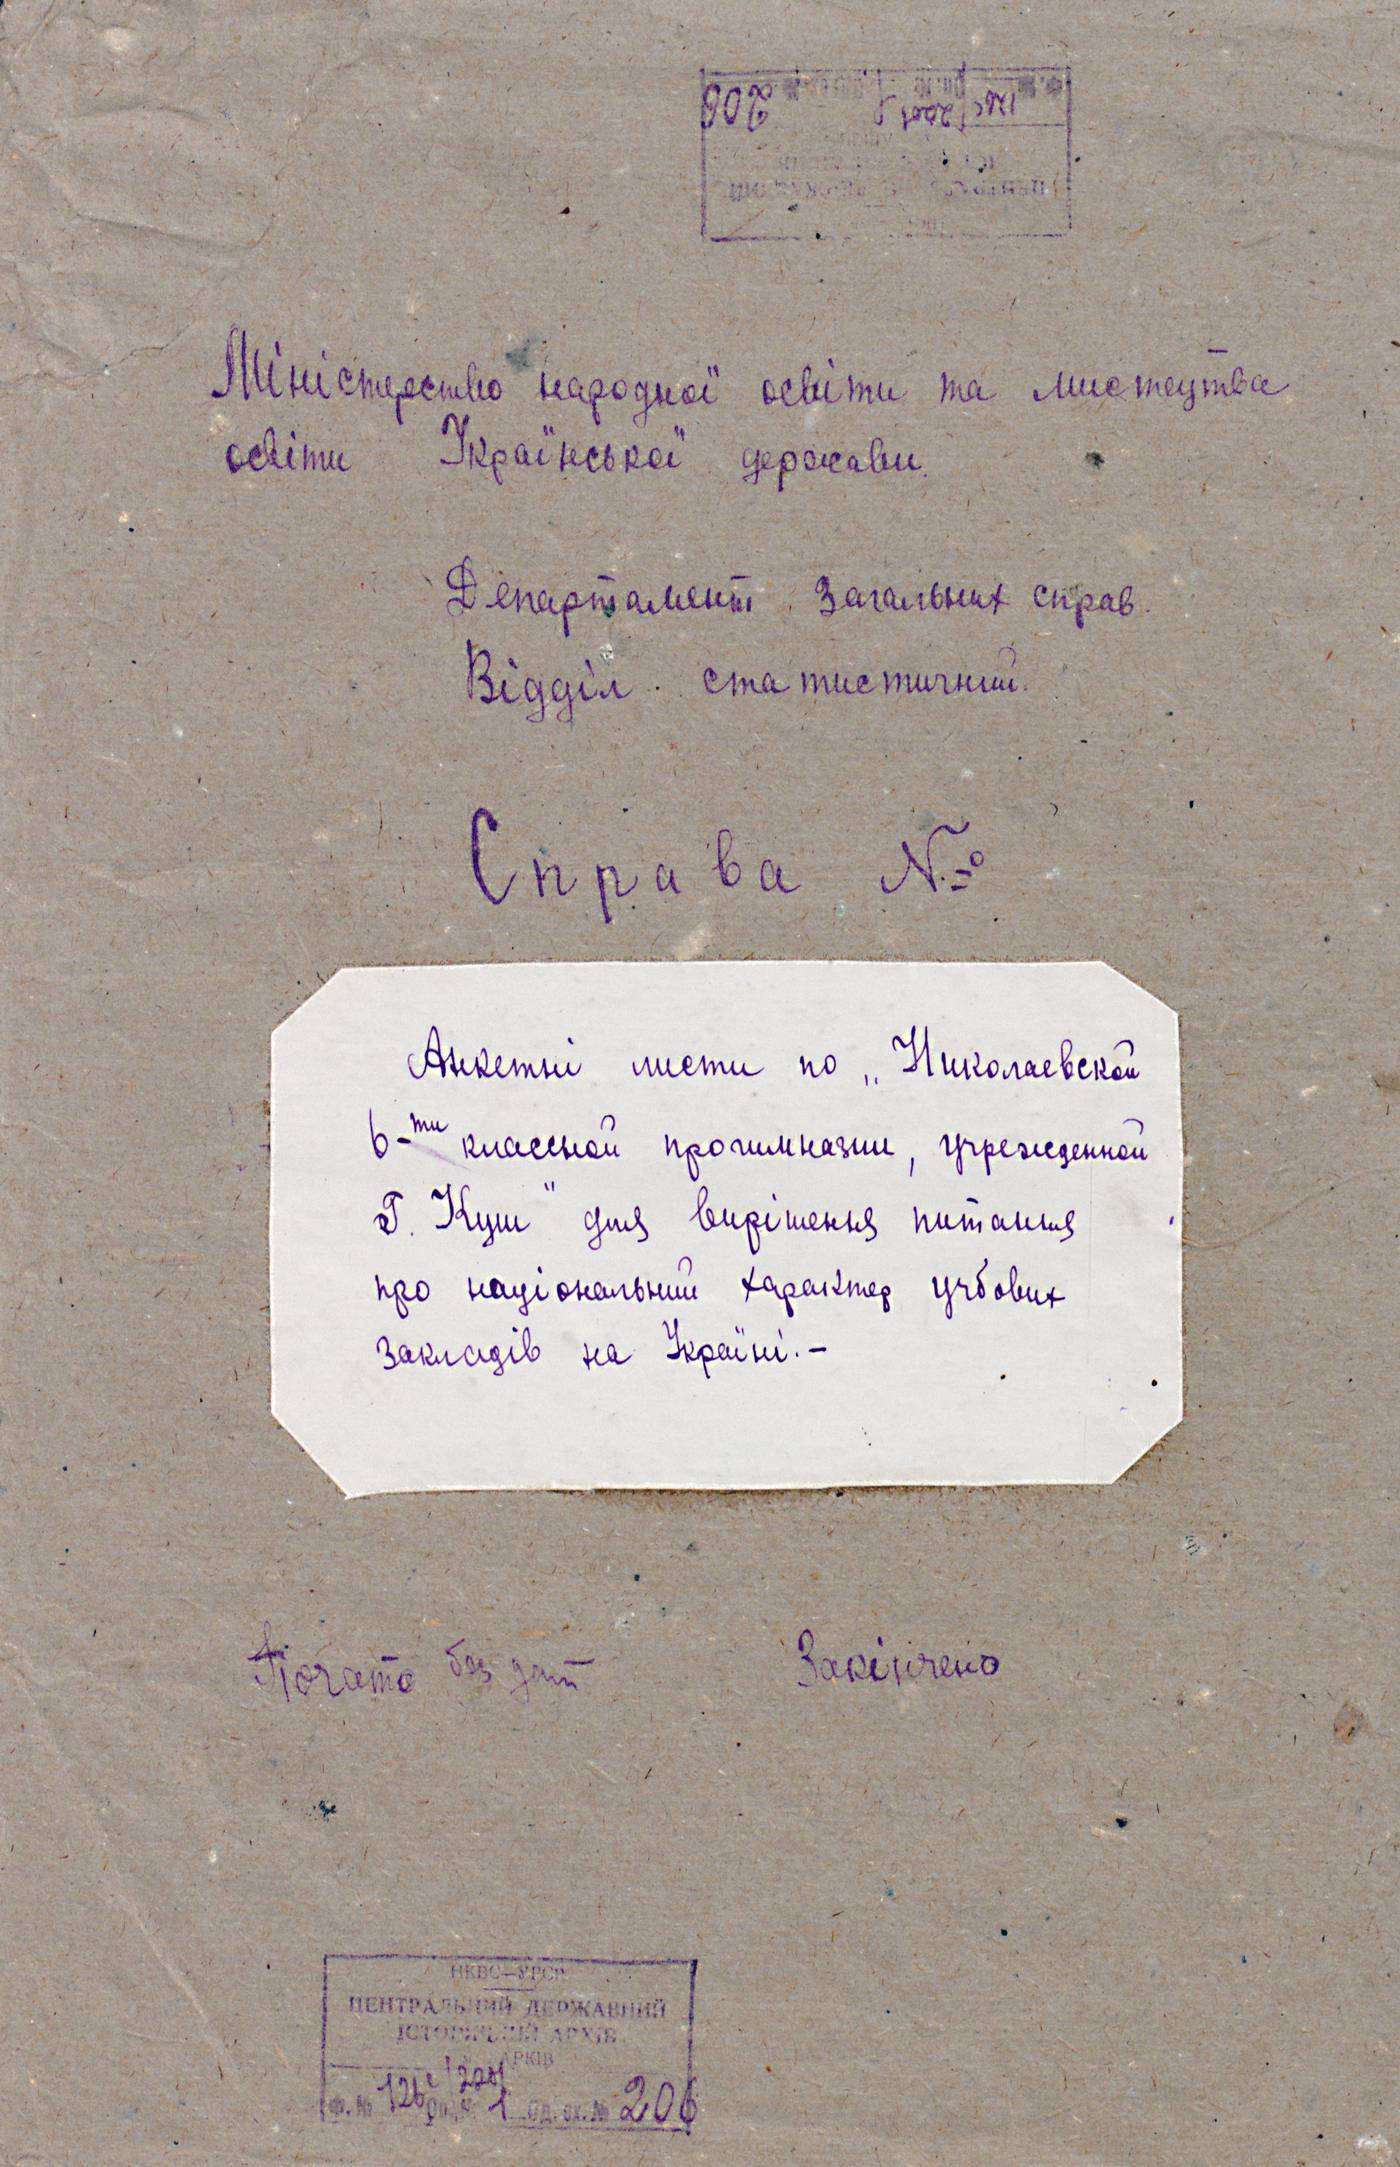 206
Міністерство народної освіти та мистецтва
освіти Української держави.
Департамент загальних справ.
Відділ статистичний.
Справа №
Анкетні листи по „Николаевской
6-ти классной прогимназии, учрежденной
Г. Куш" для вирішення питання
про національний характер учбових
закладів на Україні.-
Почато без дат Закінчено
НКВС—УРСР
ЦЕНТРАЛЬНИЙ ДЕРЖАВНИЙ
ІСТОРИЧНИЙ АРХІВ
ХАРКІВ
Ф. № 2201 Оп. № 1 Од. зх. № 206